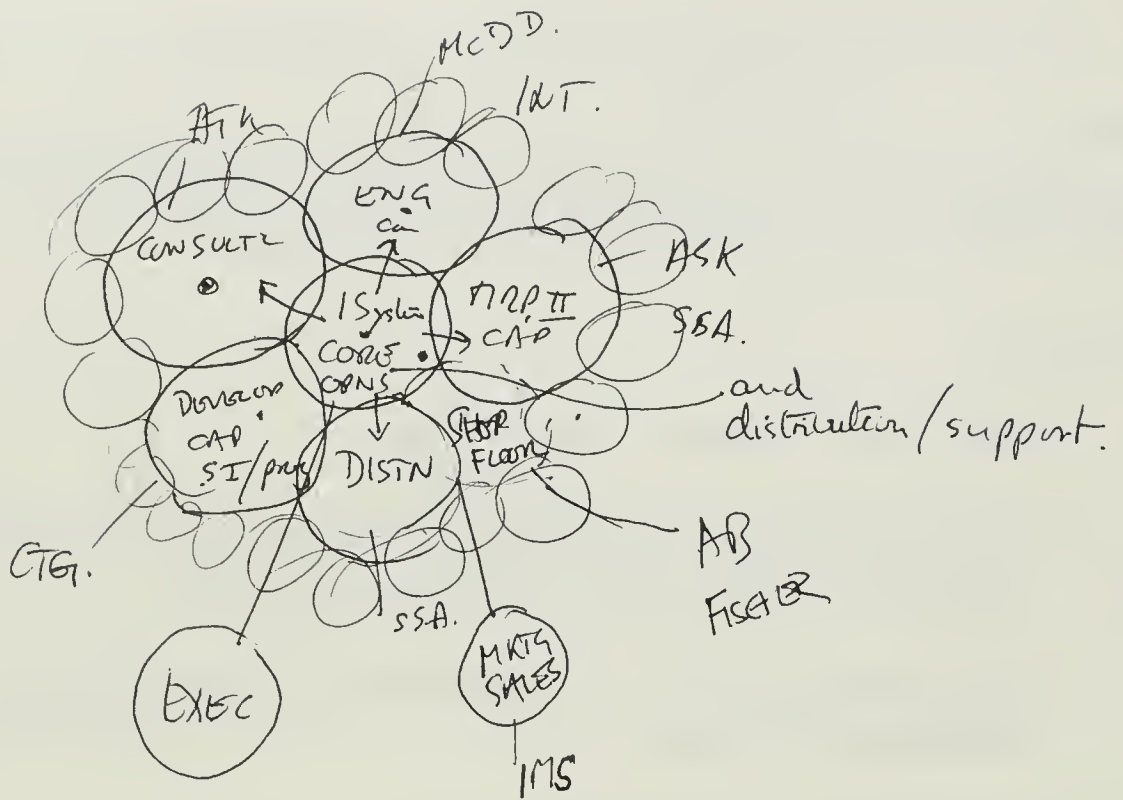 McDD.
INT.
ATK
ENG
CONSULTG
ASK
MRP II
CAP
SSA.
CORE
OPNS
and
distribution/support.
DEVELOP
CAP
SI/prog
DISTN
SHOP
FLOOR
CTG.
AB
FISHER
SSA.
EXEC
MKTG
SALES
IMS